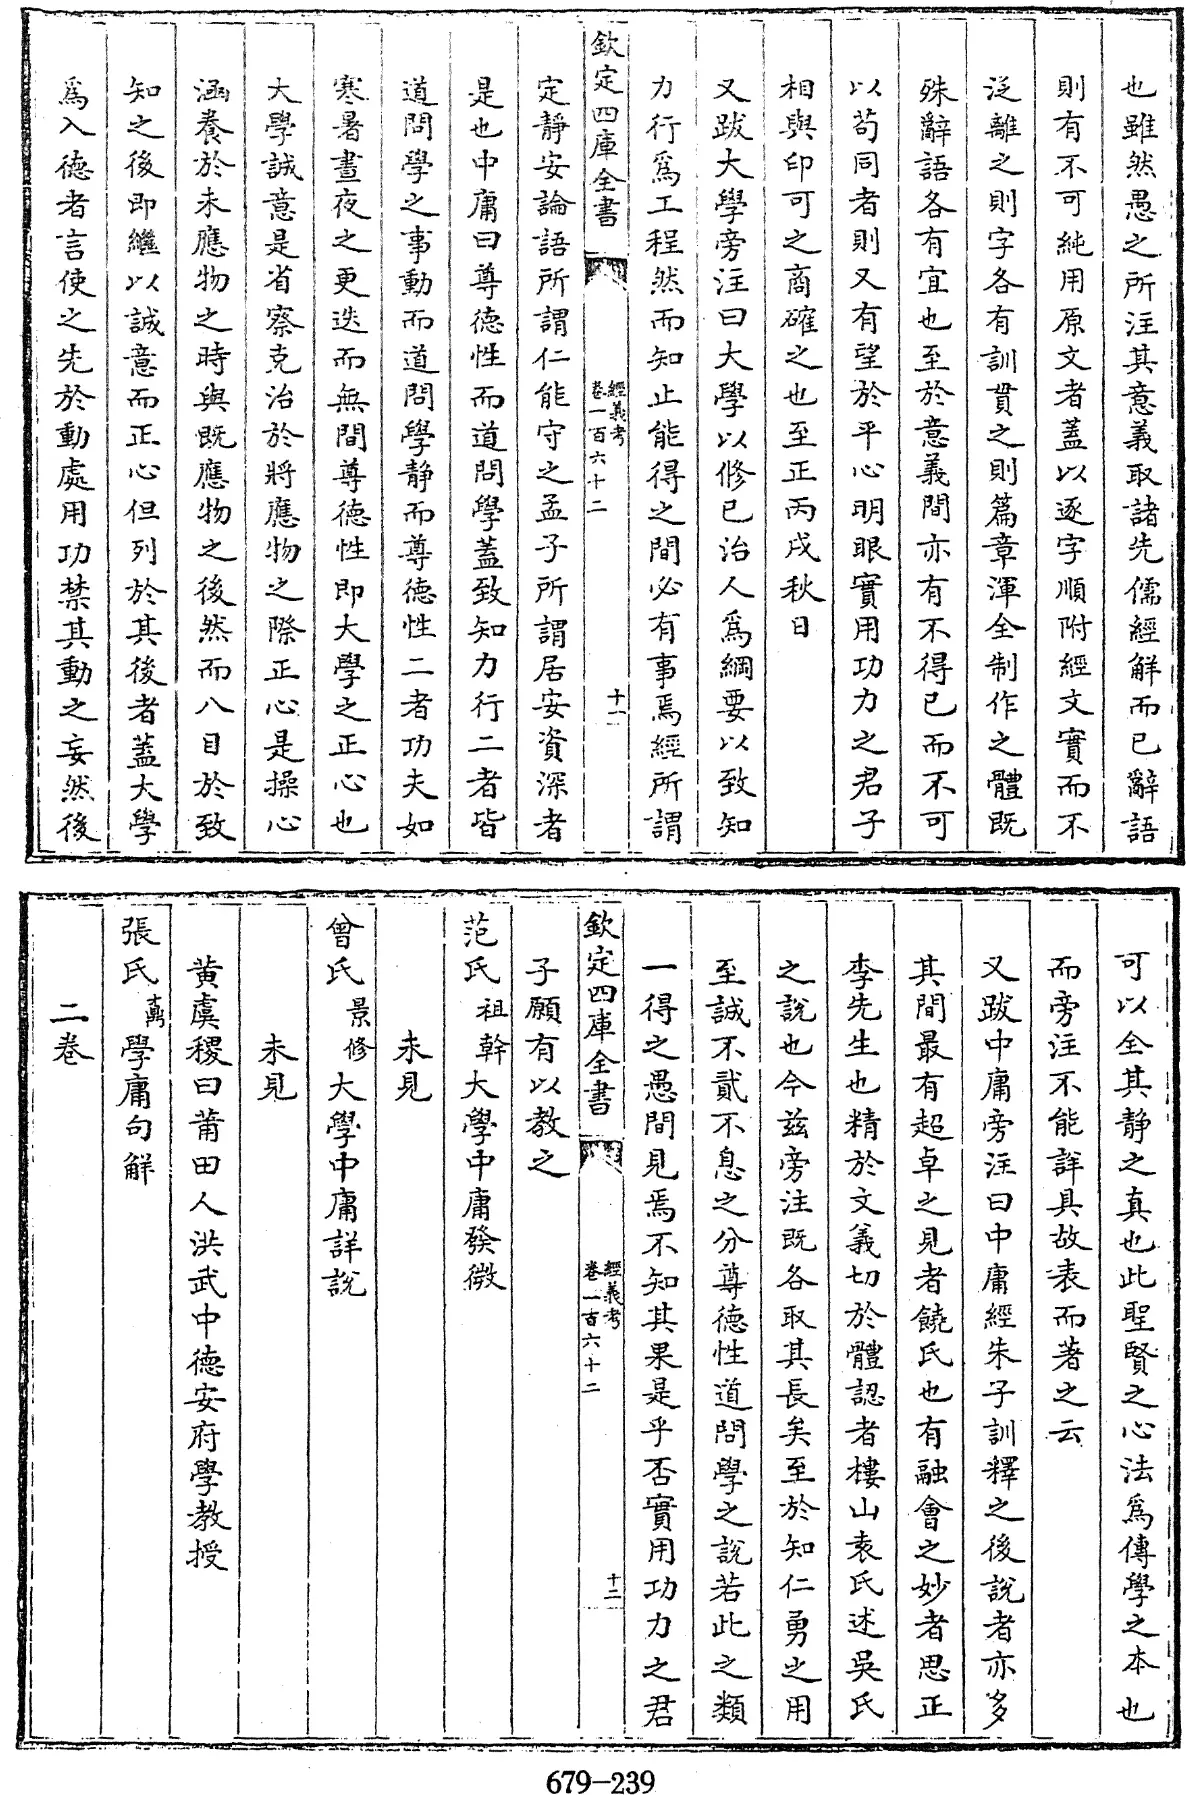 也雖然愚之所注其意義取諸先儒經解而已辭語
則有不可純用原文者蓋以逐字順附經文實而不
泛離之則字各有訓貫之則篇章渾全制作之體既
殊辭語各有宜也至於意義間亦有不得已而不可
以苟同者則又有望於平心明眼實用功力之君子
相與印可之商確之也至正丙戌秋日
又跋大學旁注曰大學以修己治人為綱要以致知
力行為工程然而知止能得之間必有事焉經所謂
欽定四庫全書
經義考
卷一百六十二
十一
定靜安論語所謂仁能守之孟子所謂居安資深者
是也中庸曰尊德性而道問學蓋致知力行二者皆
道問學之事動而道問學靜而尊德性二者功夫如
寒暑晝夜之更迭而無間尊德性即大學之正心也
大學誠意是省察克治於將應物之際正心是操心
涵養於未應物之時與既應物之後然而八目於致
知之後即繼以誠意而正心但列於其後者蓋大學
為入德者言使之先於動處用功禁其動之妄然後
可以全其靜之真也此聖賢之心法為傳學之本也
而旁注不能詳具故表而著之云
又跋中庸旁注曰中庸經朱子訓釋之後說者亦多
其間最有超卓之見者饒氏也有融會之妙者思正
李先生也精於文義切於體認者樓山袁氏述吳氏
之說也今茲旁注既各取其長矣至於知仁勇之用
至誠不貳不息之分尊德性道問學之說若此之類
一得之愚間見焉不知其果是乎否實用功力之君
欽定四庫全書
經義考
卷一百六十二
十二
子願有以教之
范氏祖幹大學中庸發微
未見
曾氏景修大學中庸詳說
未見
黃虞稷曰莆田人洪武中德安府學教授
張氏萬學庸句解
二卷
679-239